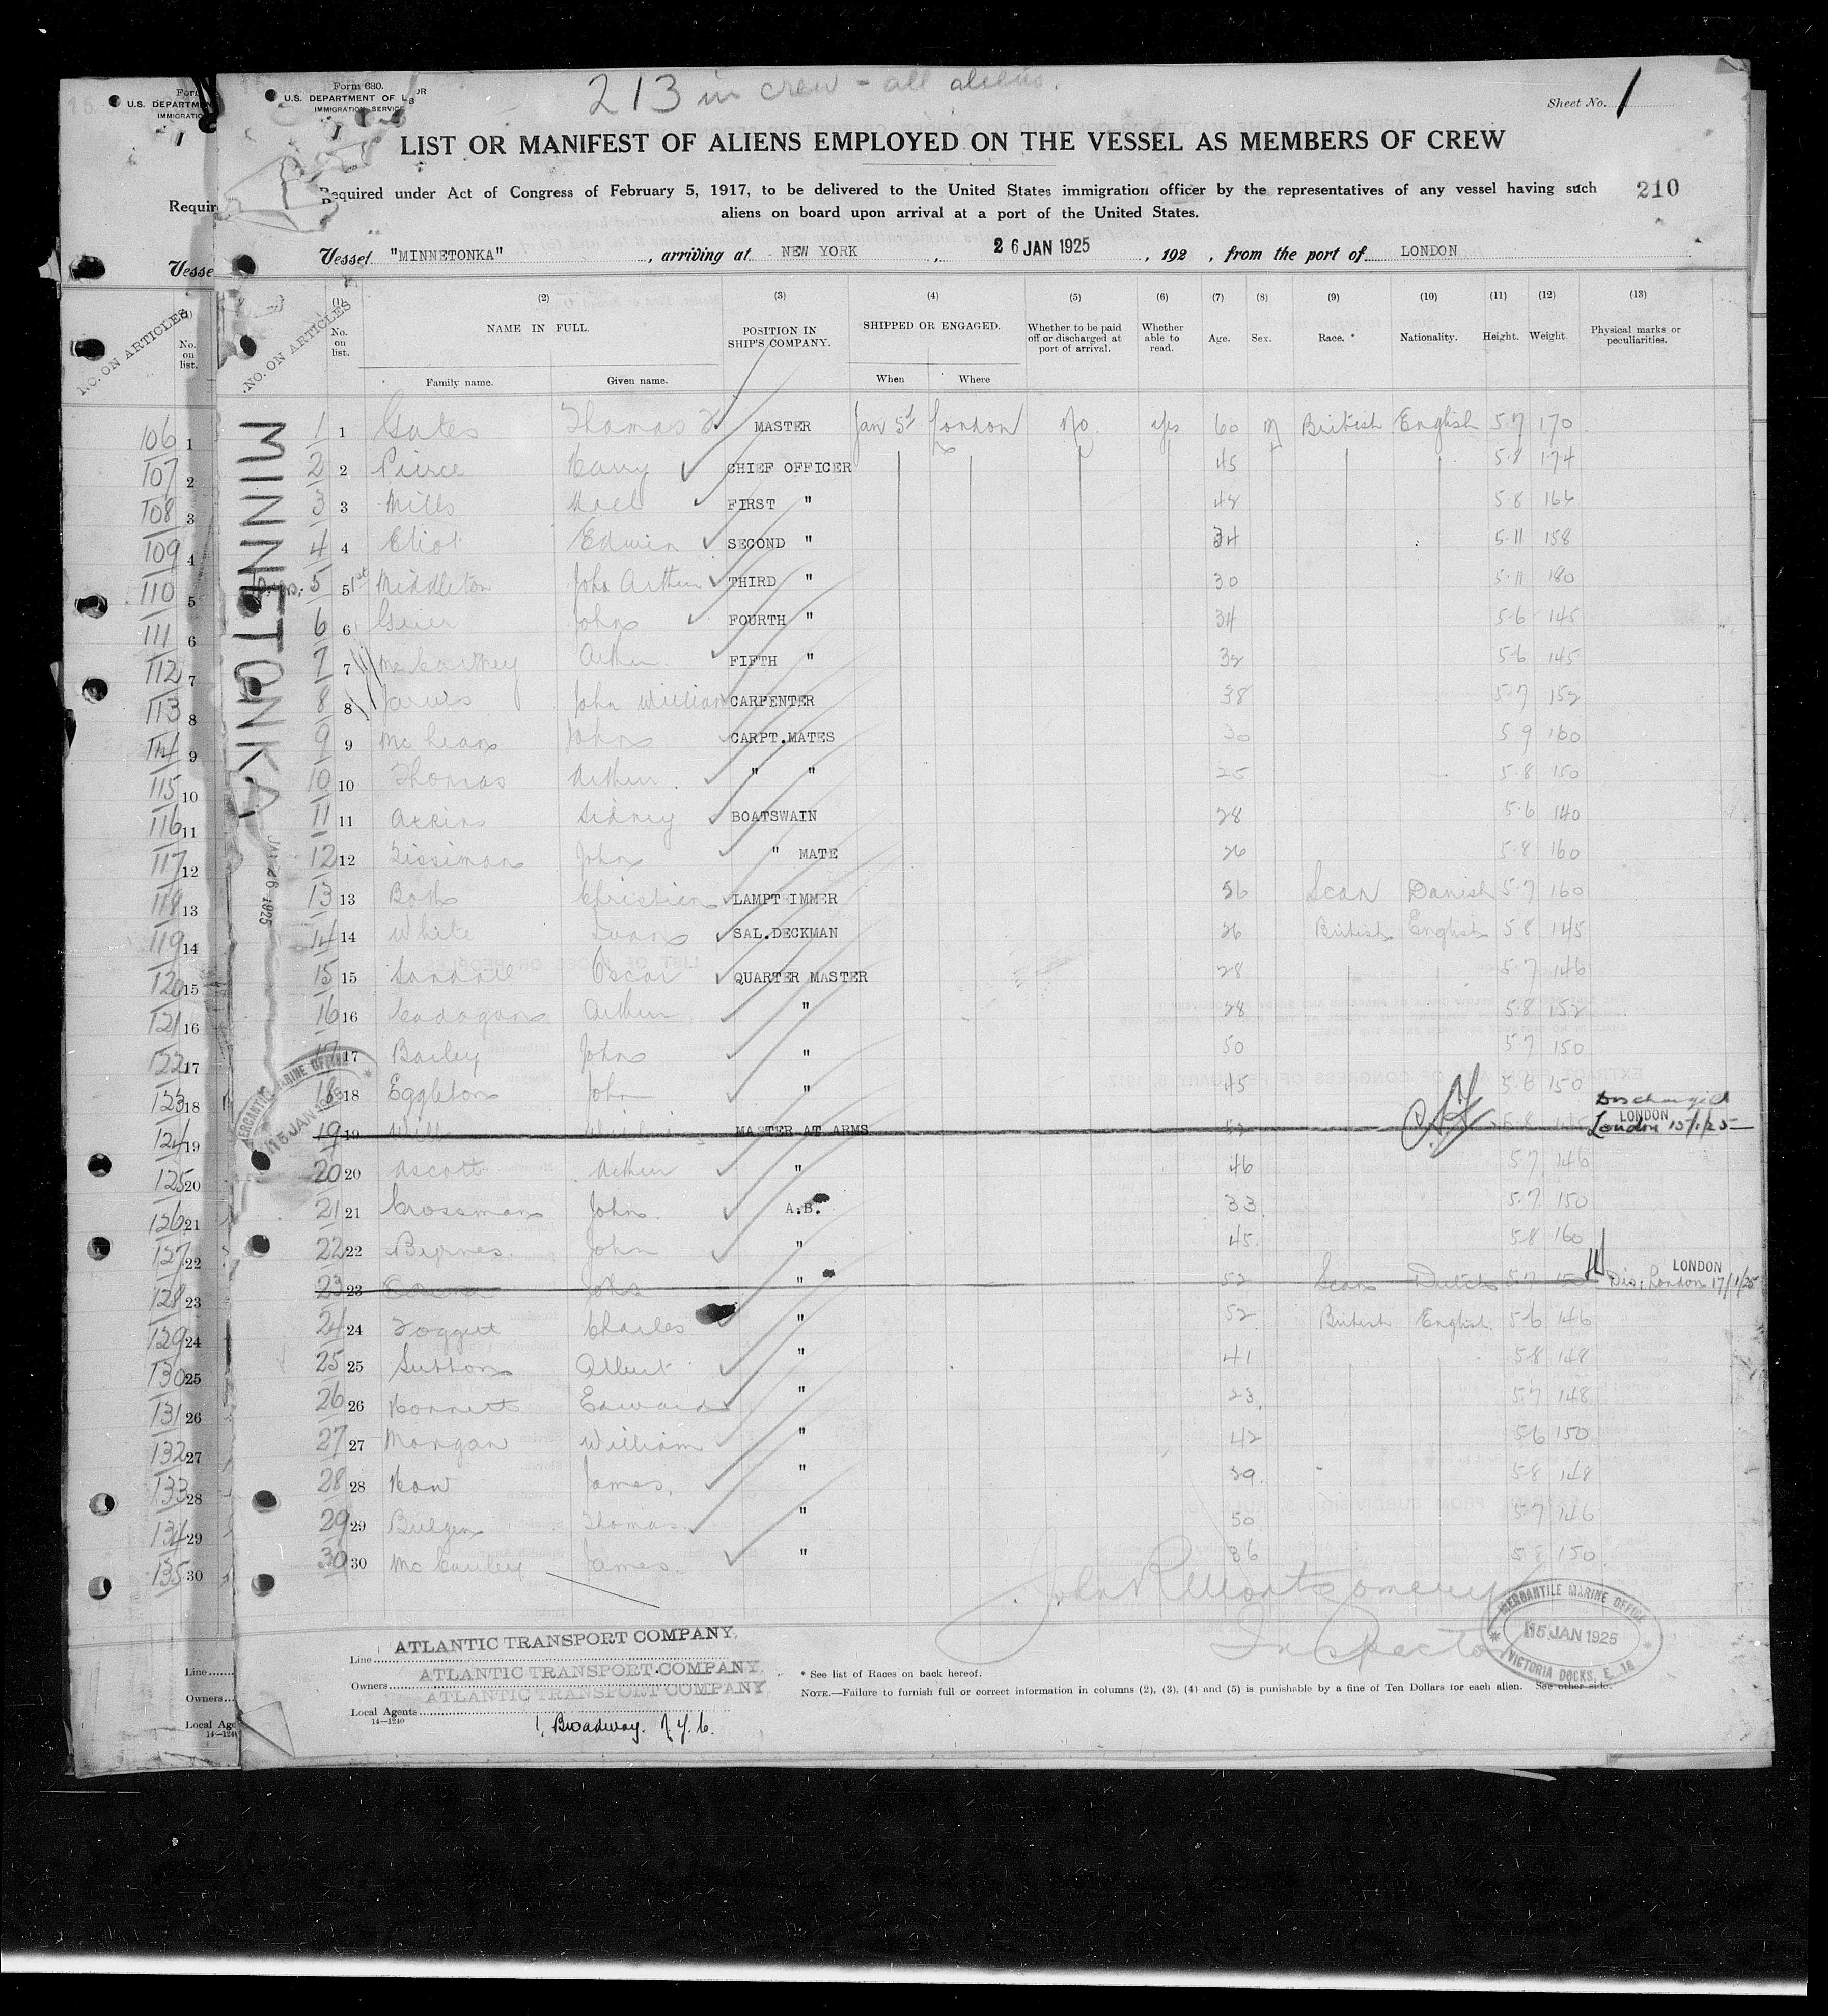 213 in crew - all aliens.
Form 680.
U.S. DEPARTMENT OF LABOR
IMMIGRATION SERVICE
Sheet No. 1
LIST OR MANIFEST OF ALIENS EMPLOYED ON THE VESSEL AS MEMBERS OF CREW
Required under Act of Congress of February 5, 1917, to be delivered to the United States immigration officer by the representatives of any vessel having such
aliens on board upon arrival at a port of the United States.
210
Vessel "MINNETONKA", arriving at NEW YORK, 26 JAN 1925, 192 , from the port of LONDON
NO. ON ARTICLES
(1) (2) (3) (4) (5) (6) (7) (8) (9) (10) (11) (12) (13)
No. on list. NAME IN FULL. POSITION IN SHIP'S COMPANY. SHIPPED OR ENGAGED. Whether to be paid off or discharged at port of arrival. Whether able to read. Age. Sex. Race.* Nationality. Height. Weight. Physical marks or peculiarities.
Family name. Given name. When Where
MINNETONKA
1 1 Gates Thomas F MASTER Jan 5th London No. Yes 60 M British English 5.7 170
2 2 Pierce Harry CHIEF OFFICER 45 5.8 174
3 3 Mills FIRST " 5.8
4 4 Eliot Edwin SECOND " 34 5.11 158
5 5 1st Middleton John Arthur THIRD " 30 5.11 180
6 6 Grier John FOURTH " 34 5.6 145
7 7 McCarthey Arthur FIFTH " 32 5.6 145
8 8 Jarvis John William CARPENTER 38 5.7 152
9 9 McLean John CARPT.MATES 30 5.9 160
10 10 Thomas Arthur " " 25 5.8 150
11 11 Atkins Sidney BOATSWAIN 28 5.6 140
12 12 John " MATE 26 5.8 160
13 13 Both Christian LAMPTRIMMER 56 Scan Danish 5.7 160
14 14 White SAL.DECKMAN 26 British English 5.8 145
15 15 Oscar QUARTER MASTER 28 5.7 146
16 16 Cadogan Arthur " 28 5.8 152
17 17 Bailey John " 50 5.7 150
18 18 Eggleton John " 45 5.6 150
19 19 MASTER AT ARMS 52 5.8 Discharged LONDON London 15/1/25
20 20 Ascott Arthur " 46 5.7 146
21 21 Crossman John A.B. 33 5.7 150
22 22 Byrnes John " 45 5.8 160
23 23 John " 52 Scan Dutch 5.7 LONDON Dis. London 17/1/25
24 24 Charles " 52 British English 5.6 146
25 25 Sutton Albert " 41 5.8 148
26 26 Edward " 23 5.7 148
27 27 Morgan William " 42 5.6 150
28 28 James " 39 5.8 148
29 29 Thomas " 50 5.7 146
30 30 McCauley James " 36 5.8 150
John R Montgomery
Inspector
MERCANTILE MARINE OFFICE
15 JAN 1925
VICTORIA DOCKS, E. 16
Line ATLANTIC TRANSPORT COMPANY,
Owners ATLANTIC TRANSPORT COMPANY,
Local Agents ATLANTIC TRANSPORT COMPANY
14—1240
1, Broadway. N.Y.C.
* See list of Races on back hereof.
NOTE.—Failure to furnish full or correct information in columns (2), (3), (4) and (5) is punishable by a fine of Ten Dollars for each alien. See other side.